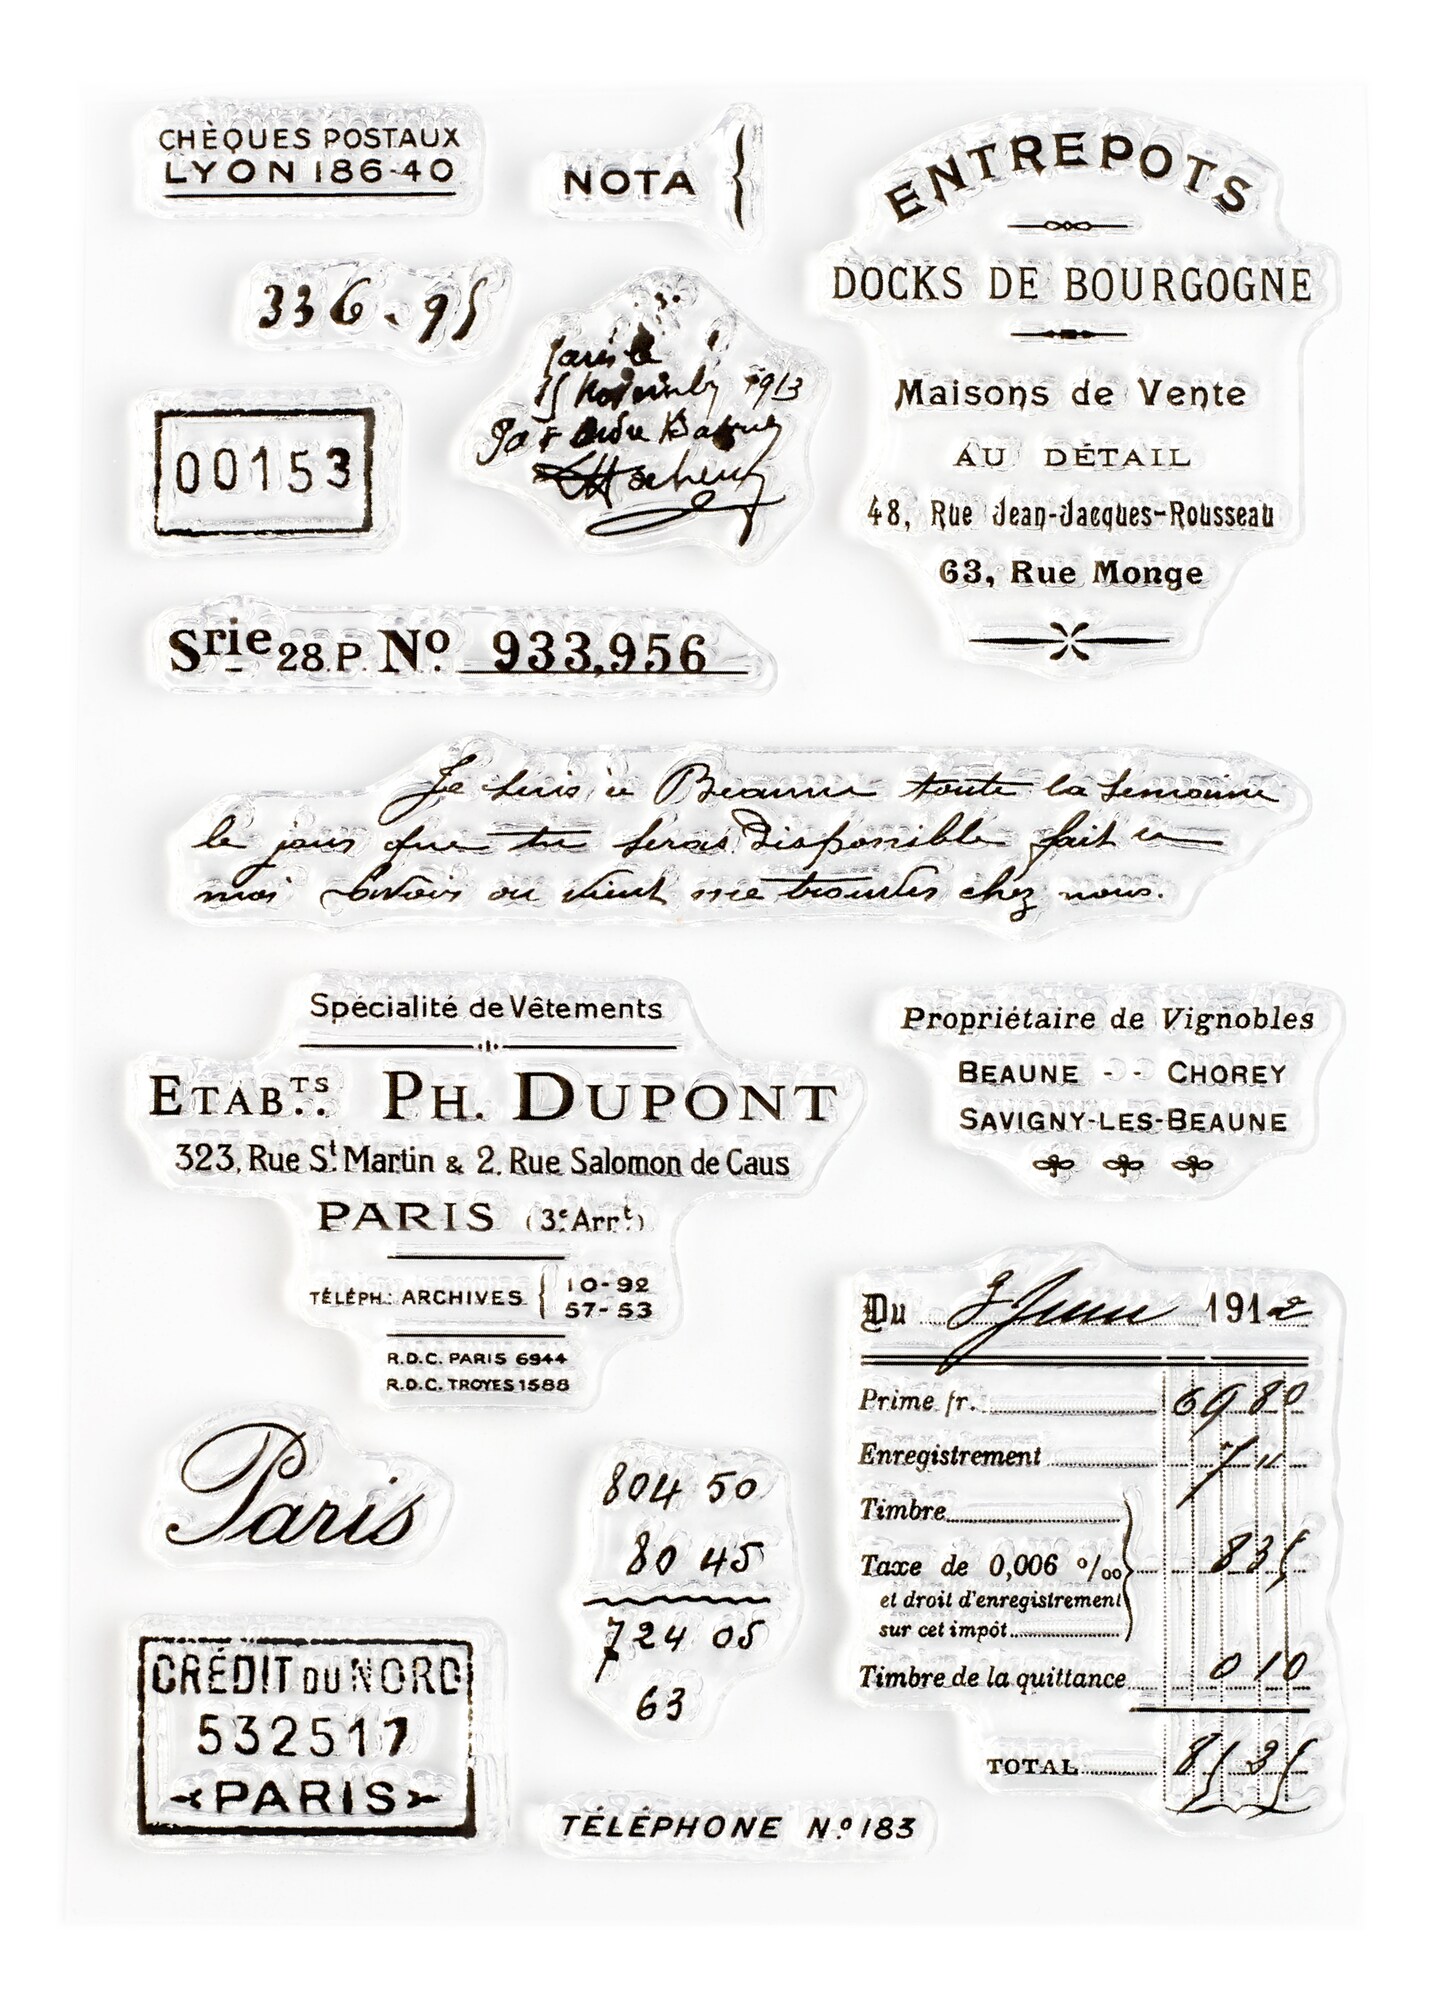 CHÈQUES POSTAUX
LYON 186-40
NOTA {
ENTREPOTS
DOCKS DE BOURGOGNE
Maisons de Vente
AU DÉTAIL
48, Rue Jean-Jacques-Rousseau
63, Rue Monge
336.95
Paris le
15 Novembre 1913
Par
00153
Srie 28.P. No 933,956
Je suis à Beaune toute la semaine
le jour que tu seras disponible fait le
moi savoir ou vient me trouver chez nous.
Spécialité de Vêtements
ETABTS. PH. DUPONT
323, Rue St Martin & 2, Rue Salomon de Caus
PARIS (3e Arrt)
TÉLÉPH.: ARCHIVES { 10-92
57-53
R.D.C. PARIS 6944
R.D.C. TROYES 1588
Propriétaire de Vignobles
BEAUNE - - CHOREY
SAVIGNY-LES-BEAUNE
Du Juin 1912
Prime fr. 69 80
Enregistrement 7 "
Timbre
Taxe de 0,006 ‰ 8 35
et droit d'enregistrement
sur cet impôt
Timbre de la quittance 0 10
TOTAL 85 25
Paris
804 50
80 45
724 05
63
CRÉDIT DU NORD
532517
PARIS
TÉLÉPHONE No 183